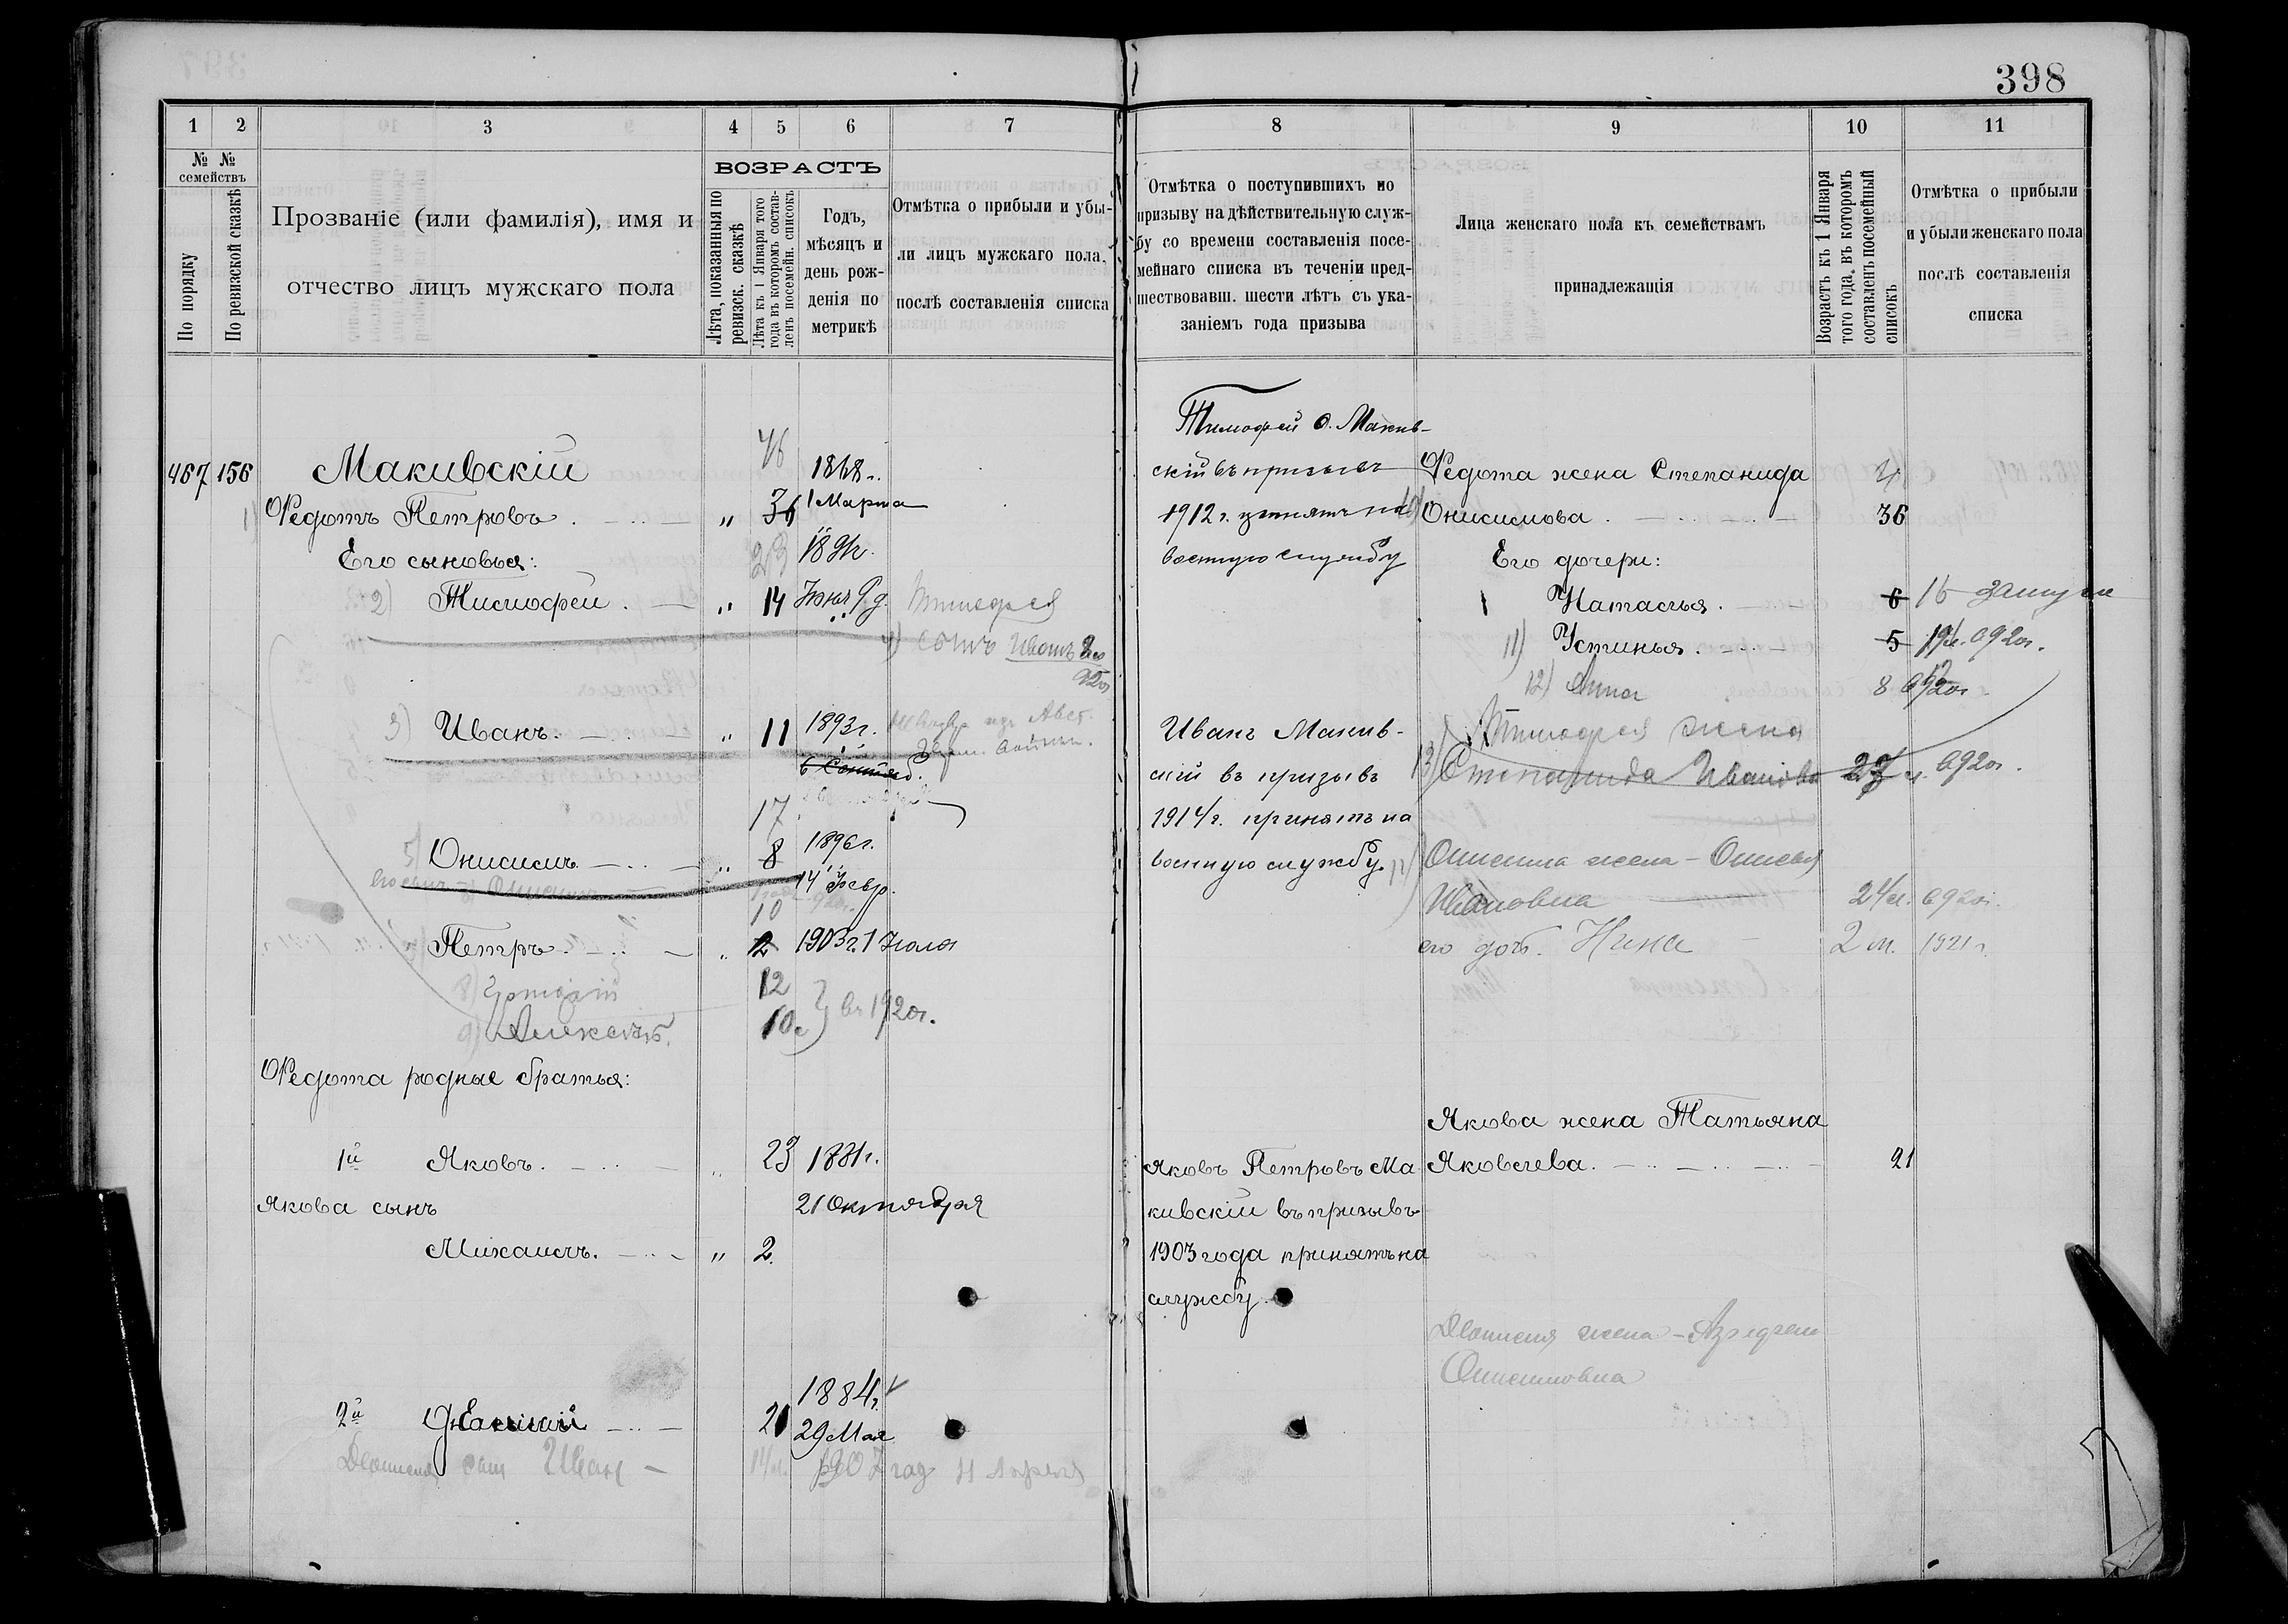 398
1 2 3 4 5 6 7
№ № семействъ
По порядку
По ревизской сказкѣ
Прозваніе (или фамилія), имя и
отчество лицъ мужскаго пола
ВОЗРАСТЪ
Лѣта, показанныя по
ревизск. сказкѣ
Лѣта къ 1 Января того
года въ которомъ состав-
ленъ посемейн. списокъ
Годъ,
мѣсяцъ и
день рож-
денія по
метрикѣ
Отмѣтка о прибыли и убы-
ли лицъ мужскаго пола,
послѣ составленія списка
467 156 Макивскій 46 1868 г.
1) Федотъ Петровъ „ 36 1 Марта
Его сыновья: 23
2) Тимофей „ 14 Тимофея
4) сынъ Иванъ
3) Иванъ „ 11 1893 г.
6 Сентяб.
17
5) Онисимъ „ 8 1896 г.
его сынъ Онисимъ 14 Февр.
10
Петръ „ 2 1903 г. 1 Іюля
8) 12
9) Алексѣй 10 въ 1920 г.
Федота родные братья:
1й Яковъ „ 23 1881 г.
Якова сынъ 21 Октября
Михаилъ „ 2
1884 г.
2й 21 29 Мая
сын Иван 14 л. 1907 год 11 Апреля
8 9 10 11
Отмѣтка о поступившихъ по
призыву на дѣйствительную служ-
бу со времени составленія посе-
мейнаго списка въ теченіи пред-
шествовавш. шести лѣтъ съ ука-
заніемъ года призыва
Лица женскаго пола къ семействамъ
принадлежащія
Возрастъ къ 1 Января
того года, въ которомъ
составленъ посемейный
списокъ
Отмѣтка о прибыли
и убыли женскаго пола
послѣ составленія
списка
Тимофей Ѳ. Макив-
скій въ призывъ
1912 г. принятъ на
военную службу
Федота жена Степанида
10) Онисимова 36
Его дочери:
Наталья 6 16 замуж
11) Устинья 5 19 л. 920 г.
12) Анна 8 920 г.
Иванъ Макив-
скій въ призывъ
1914 г. принятъ на
военную службу
Тимофея жена
13) Степанида Иванова 27 л. 920 г.
Онисима жена
Ивановна 24 л. 920 г.
его доч. Нина 2 м. 1921 г.
Якова жена Татьяна
Яковлева 21
Яковъ Петровъ Ма-
кивскій въ призывъ
1903 года принятъ на
службу.
жена
Онисимовна